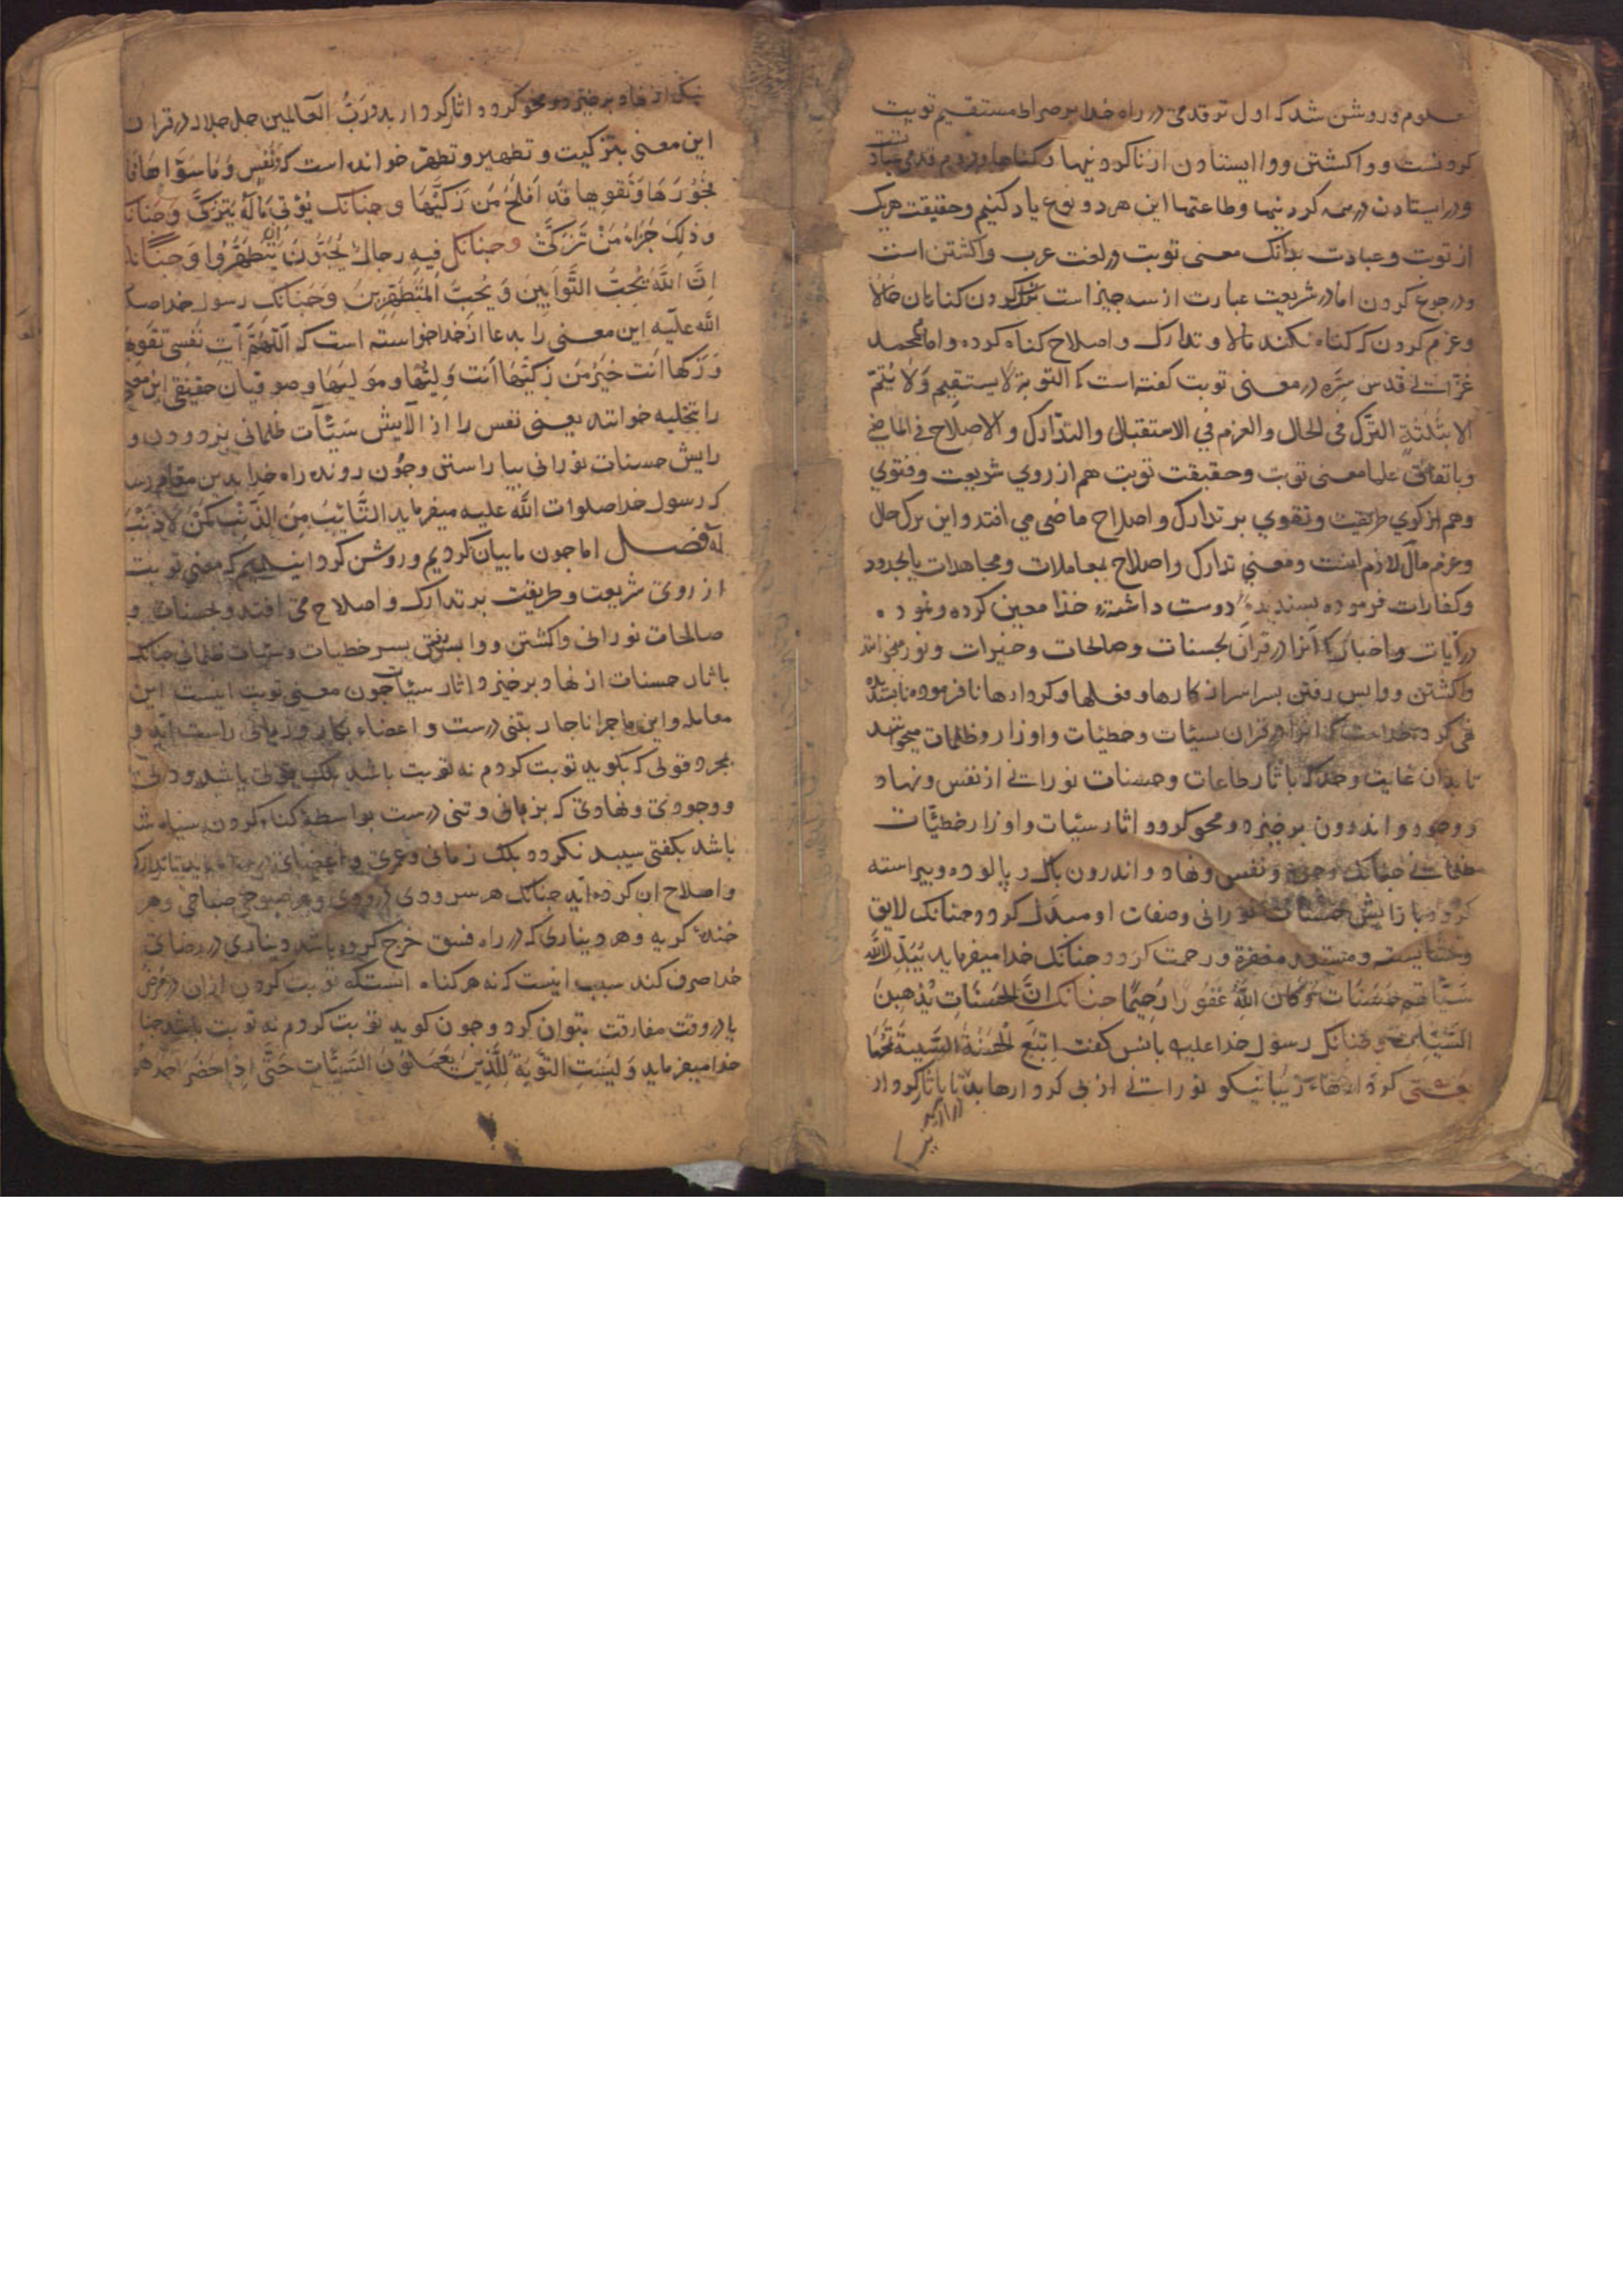 معلوم و روشن شد که اول تو قدمی در راه خدا بر صراط مستقیم توبت
کردنست و واکشتن و وا ایستادن از ناکردنیها و کناهها و دوم قدمی عبادتست
و در ایستادن در همه کردنیها و طاعتها این هر دو نوع یاد کنیم و حقیقت هریک
از توبت و عبادت بدانک معنی توبت در لغت عرب واکشتن است
و رجوع کردن اما در شریعت عبارت از سه چیز است ترک کردن کناهان حالا
و عزم کردن که کناه نکند مالا و تدارک و اصلاح کناه کرده و امام محمد
غزالی قدس سره در معنی توبت کفته است که التوبة لا یستقیم ولا یتم
الا بثلثة الترک فی الحال والعزم فی الاستقبال والتدارک والاصلاح فی الماضی
و باتفاق علما معنی توبت و حقیقت توبت هم از روی شریعت و فتوی
و هم از کوی طریقت و تقوی بر تدارک و اصلاح ماضی می افتد و این ترک حال
و عزم مآل لازم اینست و معنی تدارک و اصلاح بمعاملات و مجاهدات یا بحدود
و کفارات فرموده پسندیده دوست داشته خدا معین کرده و نمود
در آیات و اخبار که آنرا در قران بحسنات و صالحات و خیرات و نور میخوانند
واکشتن و واپس رفتن بسراسر از کارها و فعلها و کردارها نافرموده ناپسندیده
کرده خداست که آنرا در قران سیئات و خطیئات و اوزار و ظلمات میخوانند
تا بدان غایت و حد که باثار طاعات و حسنات نورانی از نفس و نهاد
و وجود و اندرون برخیزد و محو کردد اثار سیئات و اوزار خطیئات
ظلمانی چنانک وجود و نفس و نهاد و اندرون پاک و پالوده و پیراسته
کردد بآرایش حسنات نورانی و صفات او مبدل کردد و چنانک لایق
و مستعد مغفرة و رحمت کردد چنانک خدا میفرماید یبدل الله
سیئاتهم حسنات وکان الله غفورا رحیما چنانک ان الحسنات یذهبن
السیئات و چنانک رسول خدا علیه بانس کفت اتبع الحسنة السیئة تمحها
یعنی کردارهاء زیبا نیکو نورانی از پی کردارها بد تا باثار کردار
نیک از نهاد برخیزد و محو کردد اثار کردار بد و رب العالمین جل جلاله در قران
این معنی بتزکیت و تطهیر و تطهر خوانده است که و نفس وما سواها فا
فجورها وتقویها قد افلح من زکیها و چنانک یؤتی ماله یتزکی و چنانک
وذلک جزاء من تزکی و چنانک فیه رجال یحبون ان یتطهروا و چنانک
ان الله یحب التوابین ویحب المتطهرین و چنانک رسول خدا صلی
الله علیه این معنی را بدعا از خدا خواسته است که اللهم آت نفسی تقویها
وزکها انت خیر من زکیها انت ولیها ومولیها و صوفیان حقیقی این معنی
را تخلیه خوانند یعنی نفس را از آلایش سیئات ظلمانی بزدودن و
رایش حسنات نورانی بیاراستن و چون رونده راه خدا بدین مقام رسد
که رسول خدا صلوات الله علیه میفرماید التائب من الذنب کمن لا ذنب
له فصل اما چون ما بیان کردیم و روشن کردانیدیم که معنی توبت
از روی شریعت و طریقت بر تدارک و اصلاح می افتد و بحسنات و
صالحات نورانی واکشتن و واپس رفتن بسر خطیات و سیئات ظلمانی چنانک
باثار حسنات از نهاد برخیزد اثار سیئات چون معنی توبت اینست این
معامله و این ماجرا ناچار بتنی درست و اعضاء بکار و زبانی راست آید و
بمجرد قولی که بکوید توبت کردم نه توبت باشد بلک قولی باشد و دلی
و وجودی و نهادی که بزمانی و تنی درست بواسطه کناه کردن سیاه شده
باشد بکفتی سپید نکردد بلک زمانی و عمری و اعضای باید تا تدارک
و اصلاح آن کرده آید چنانک هر سرودی درودی و هر صبوحی صباحی و هر
خنده کریه و هر دیناری که در راه فسق خرج کرده باشد دیناری در رضای
خدا صرف کند سبب اینست که نه هر کناه اینستکه توبت کردن ازان در مرض
یا در وقت مفارقت بتوان کرد و چون کوید توبت کردم نه توبت باشد چنا
خدا میفرماید ولیست التوبة للذین یعملون السیئات حتی اذا حضر احدهم